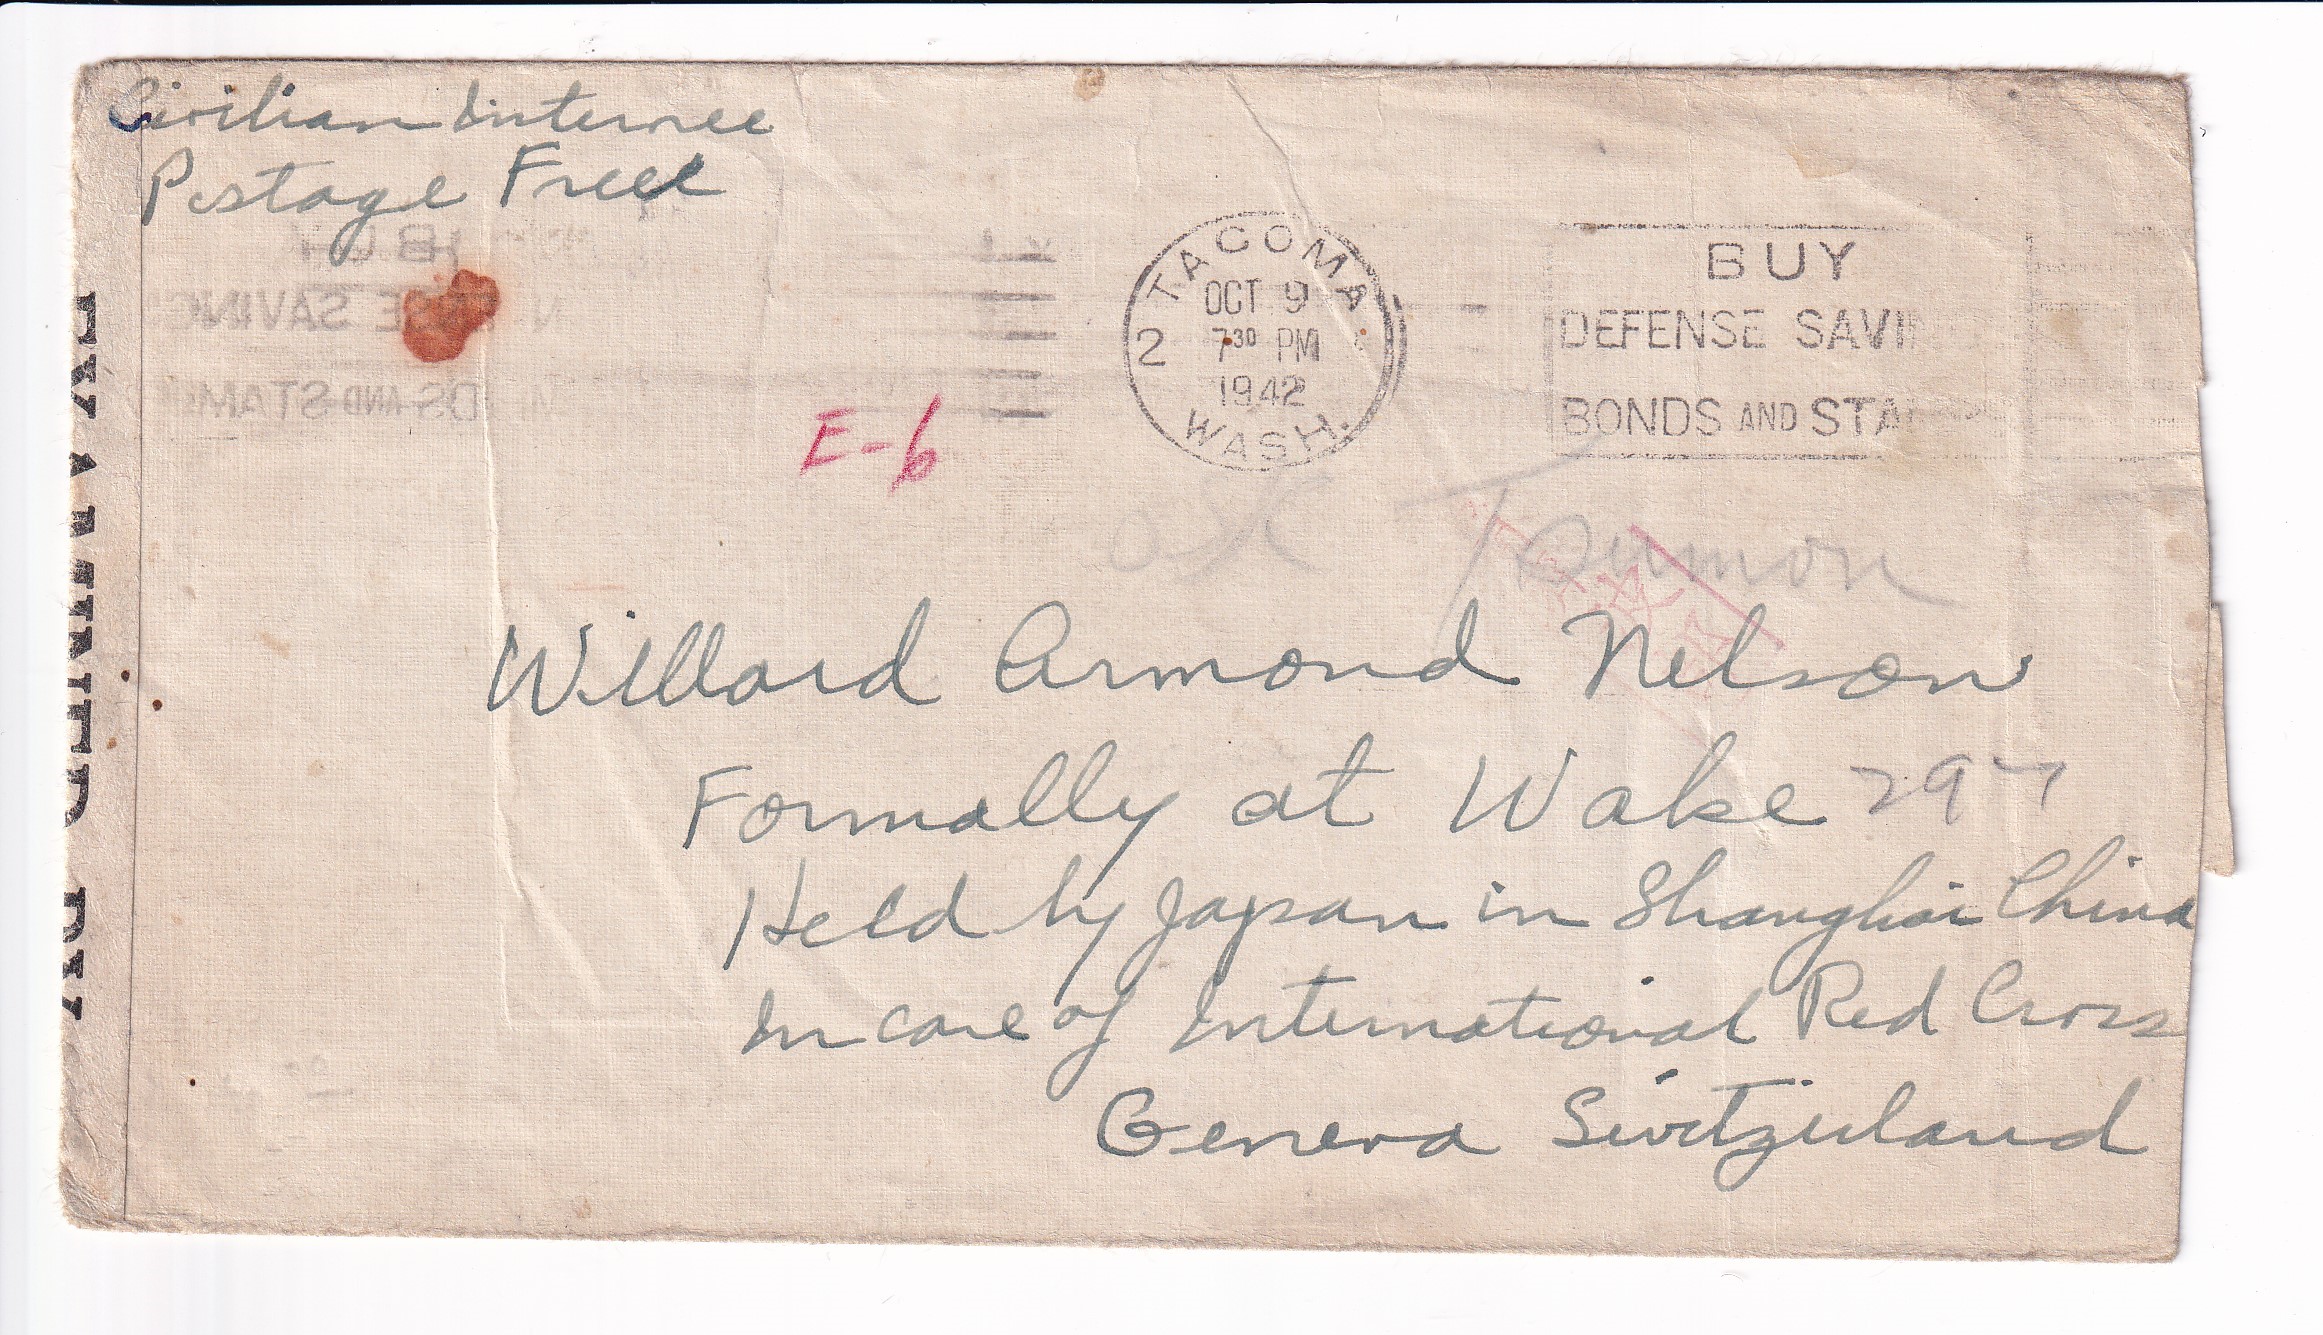 Civilian Internee
Postage Free
TACOMA
WASH.
2
OCT 9
7 30 PM
1942
BUY
DEFENSE SAVIN
BONDS AND STA
E-6
OK
Willard Armond Nelson
Formally at Wake 297
Held by Japan in Shanghai China
In care of International Red Cross
Geneva Switzerland
EXAMINED BY